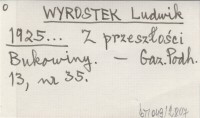 0
WYROSTEK Ludwik
1925... Z przeszłości
Bukowiny. — Gaz. Podh.
13, nr 35.